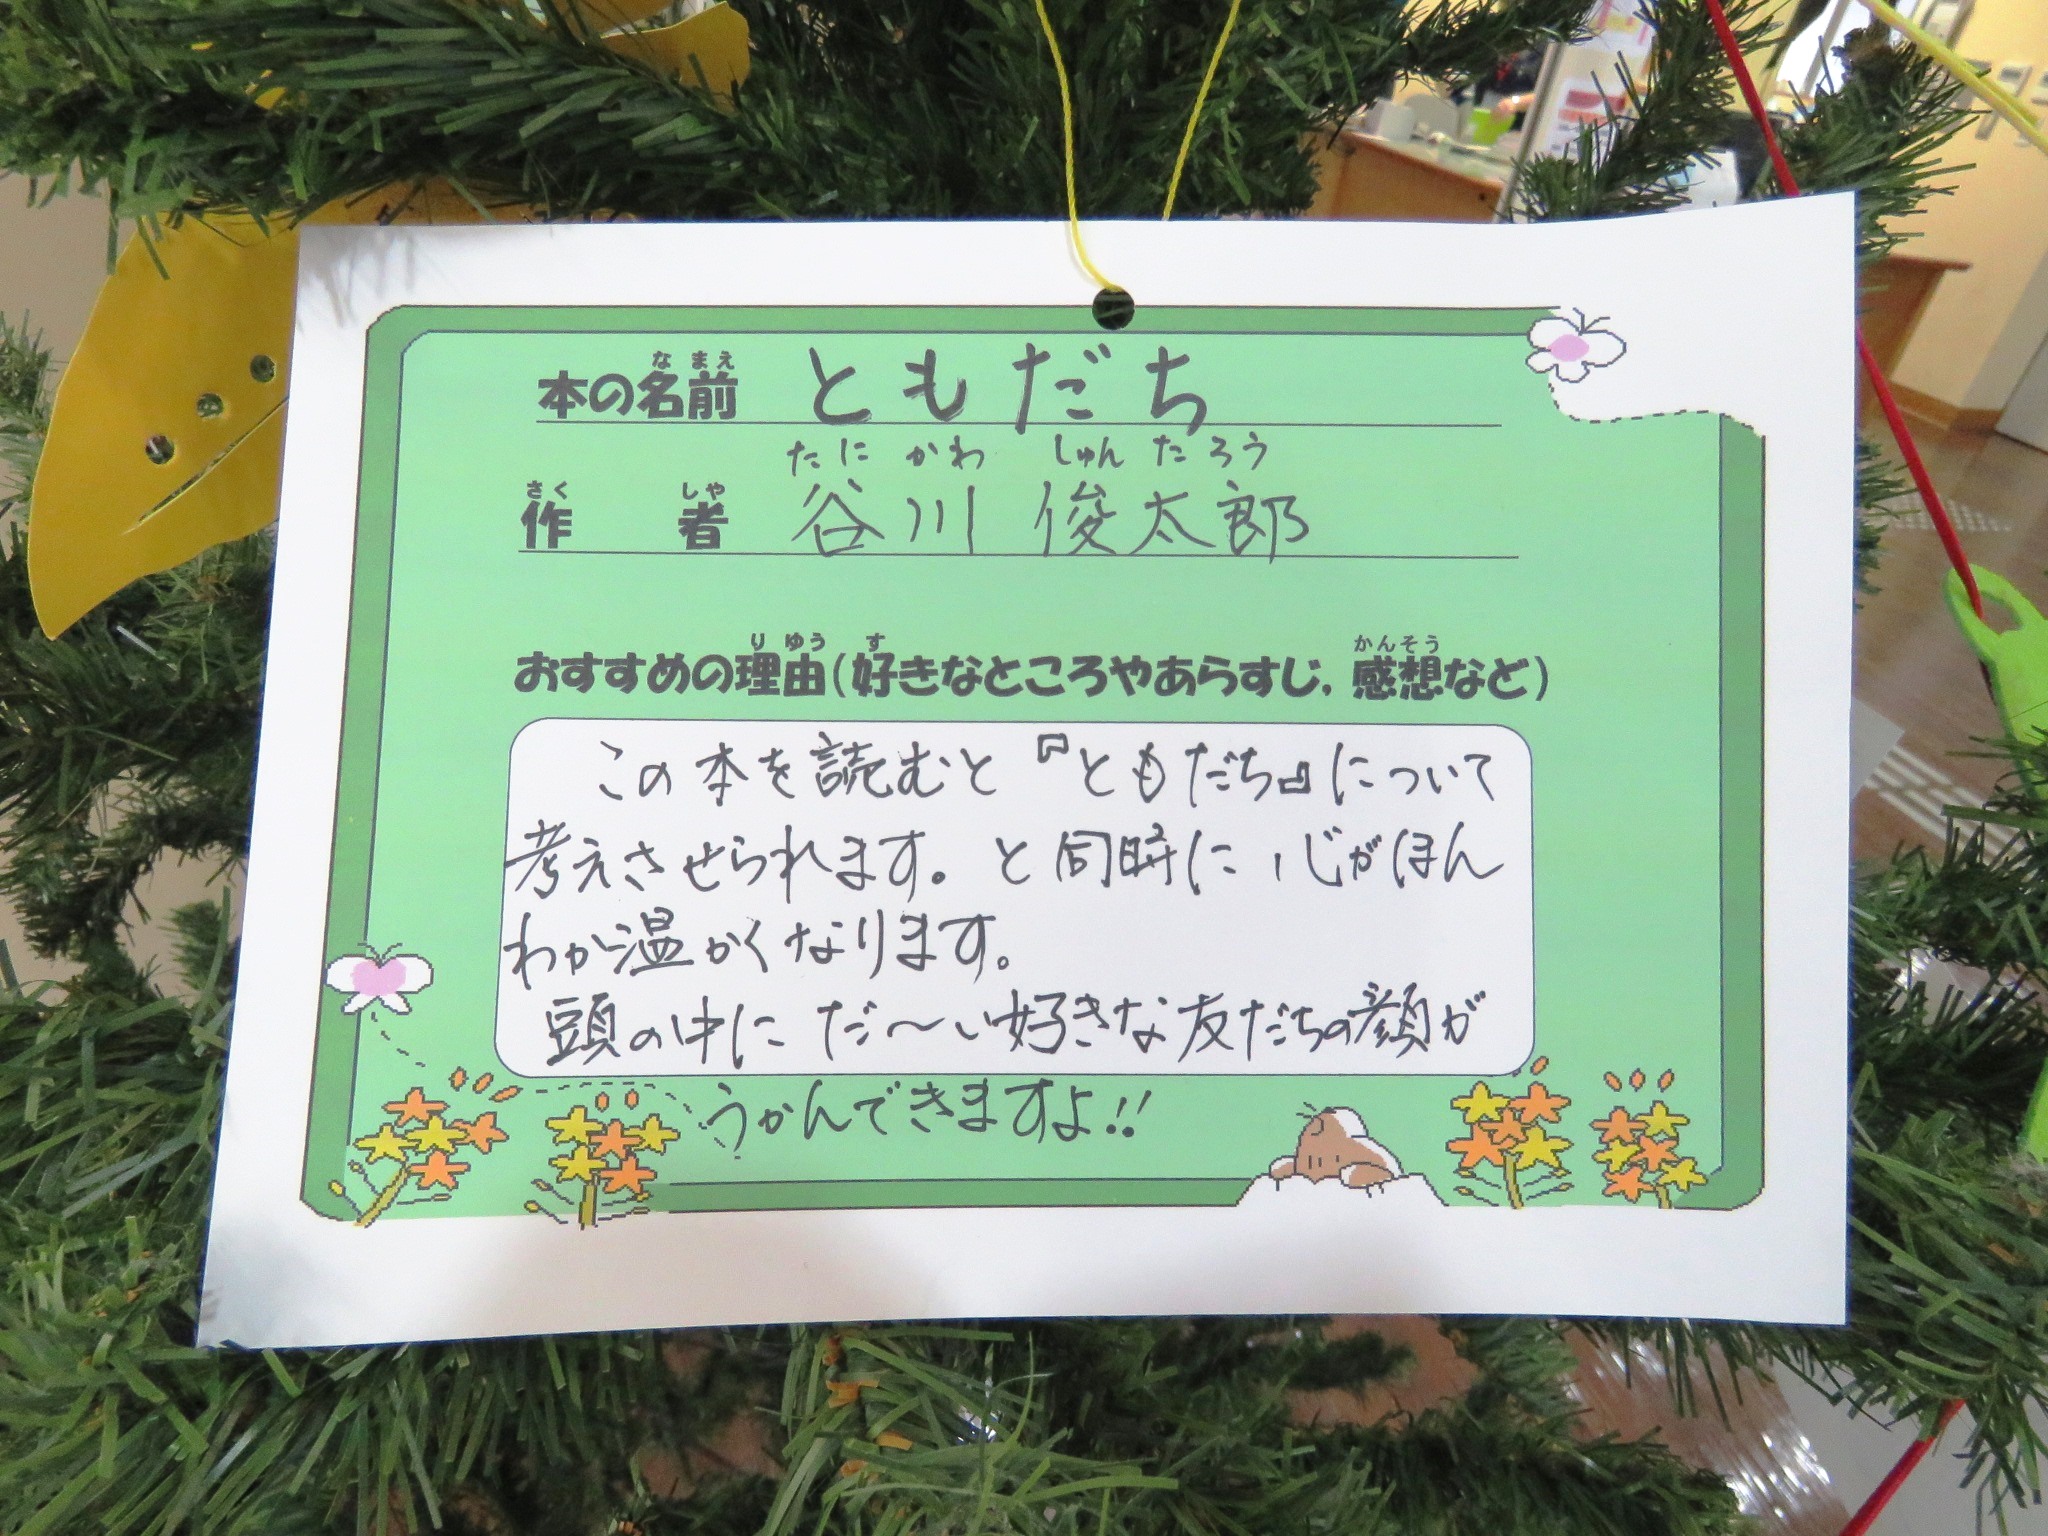 なまえ
本の名前 ともだち
たに かわ しゅん た ろう
さく しゃ
作者 谷川 俊太郎
りゆう す かんそう
おすすめの理由(好きなところやあらすじ,感想など)
この本を読むと『ともだち』について
考えさせられます。と同時に心がほん
わか温かくなります。
頭の中に だ〜い好きな友だちの顔が
うかんできますよ!!